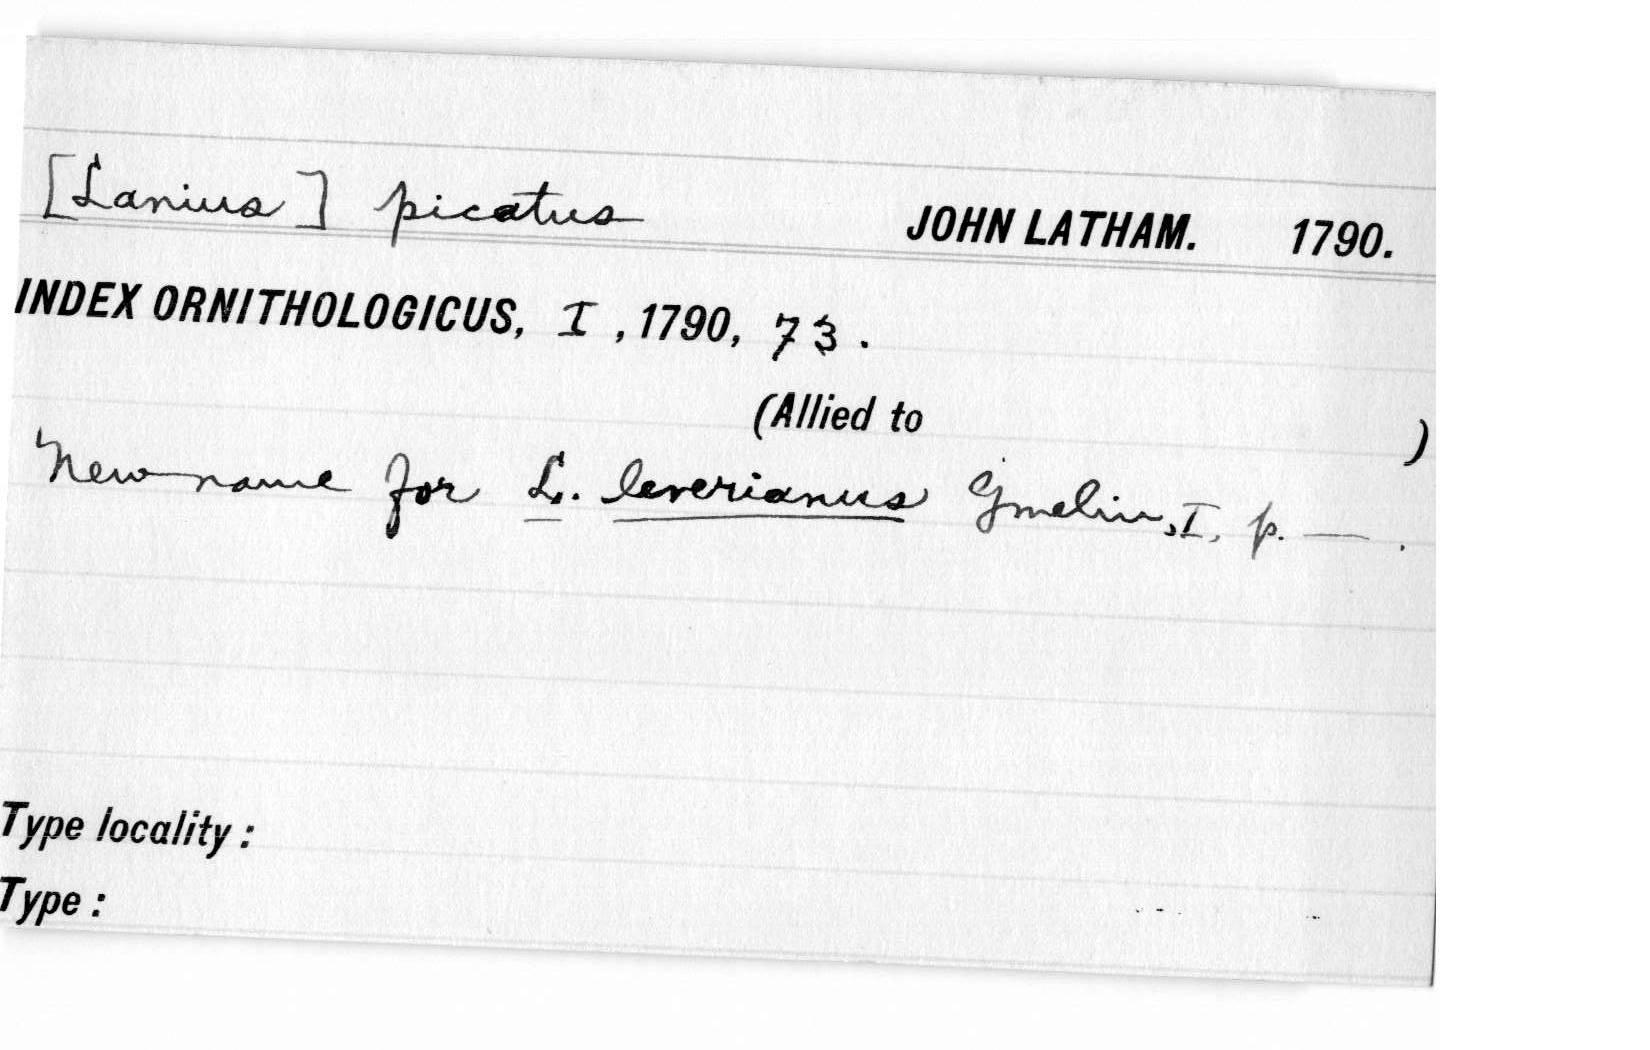 [Lanius] picatus JOHN LATHAM. 1790.
INDEX ORNITHOLOGICUS, I, 1790, 73.
(Allied to )
New name for L. leverianus Gmelin, I, p. — .
Type locality :
Type :